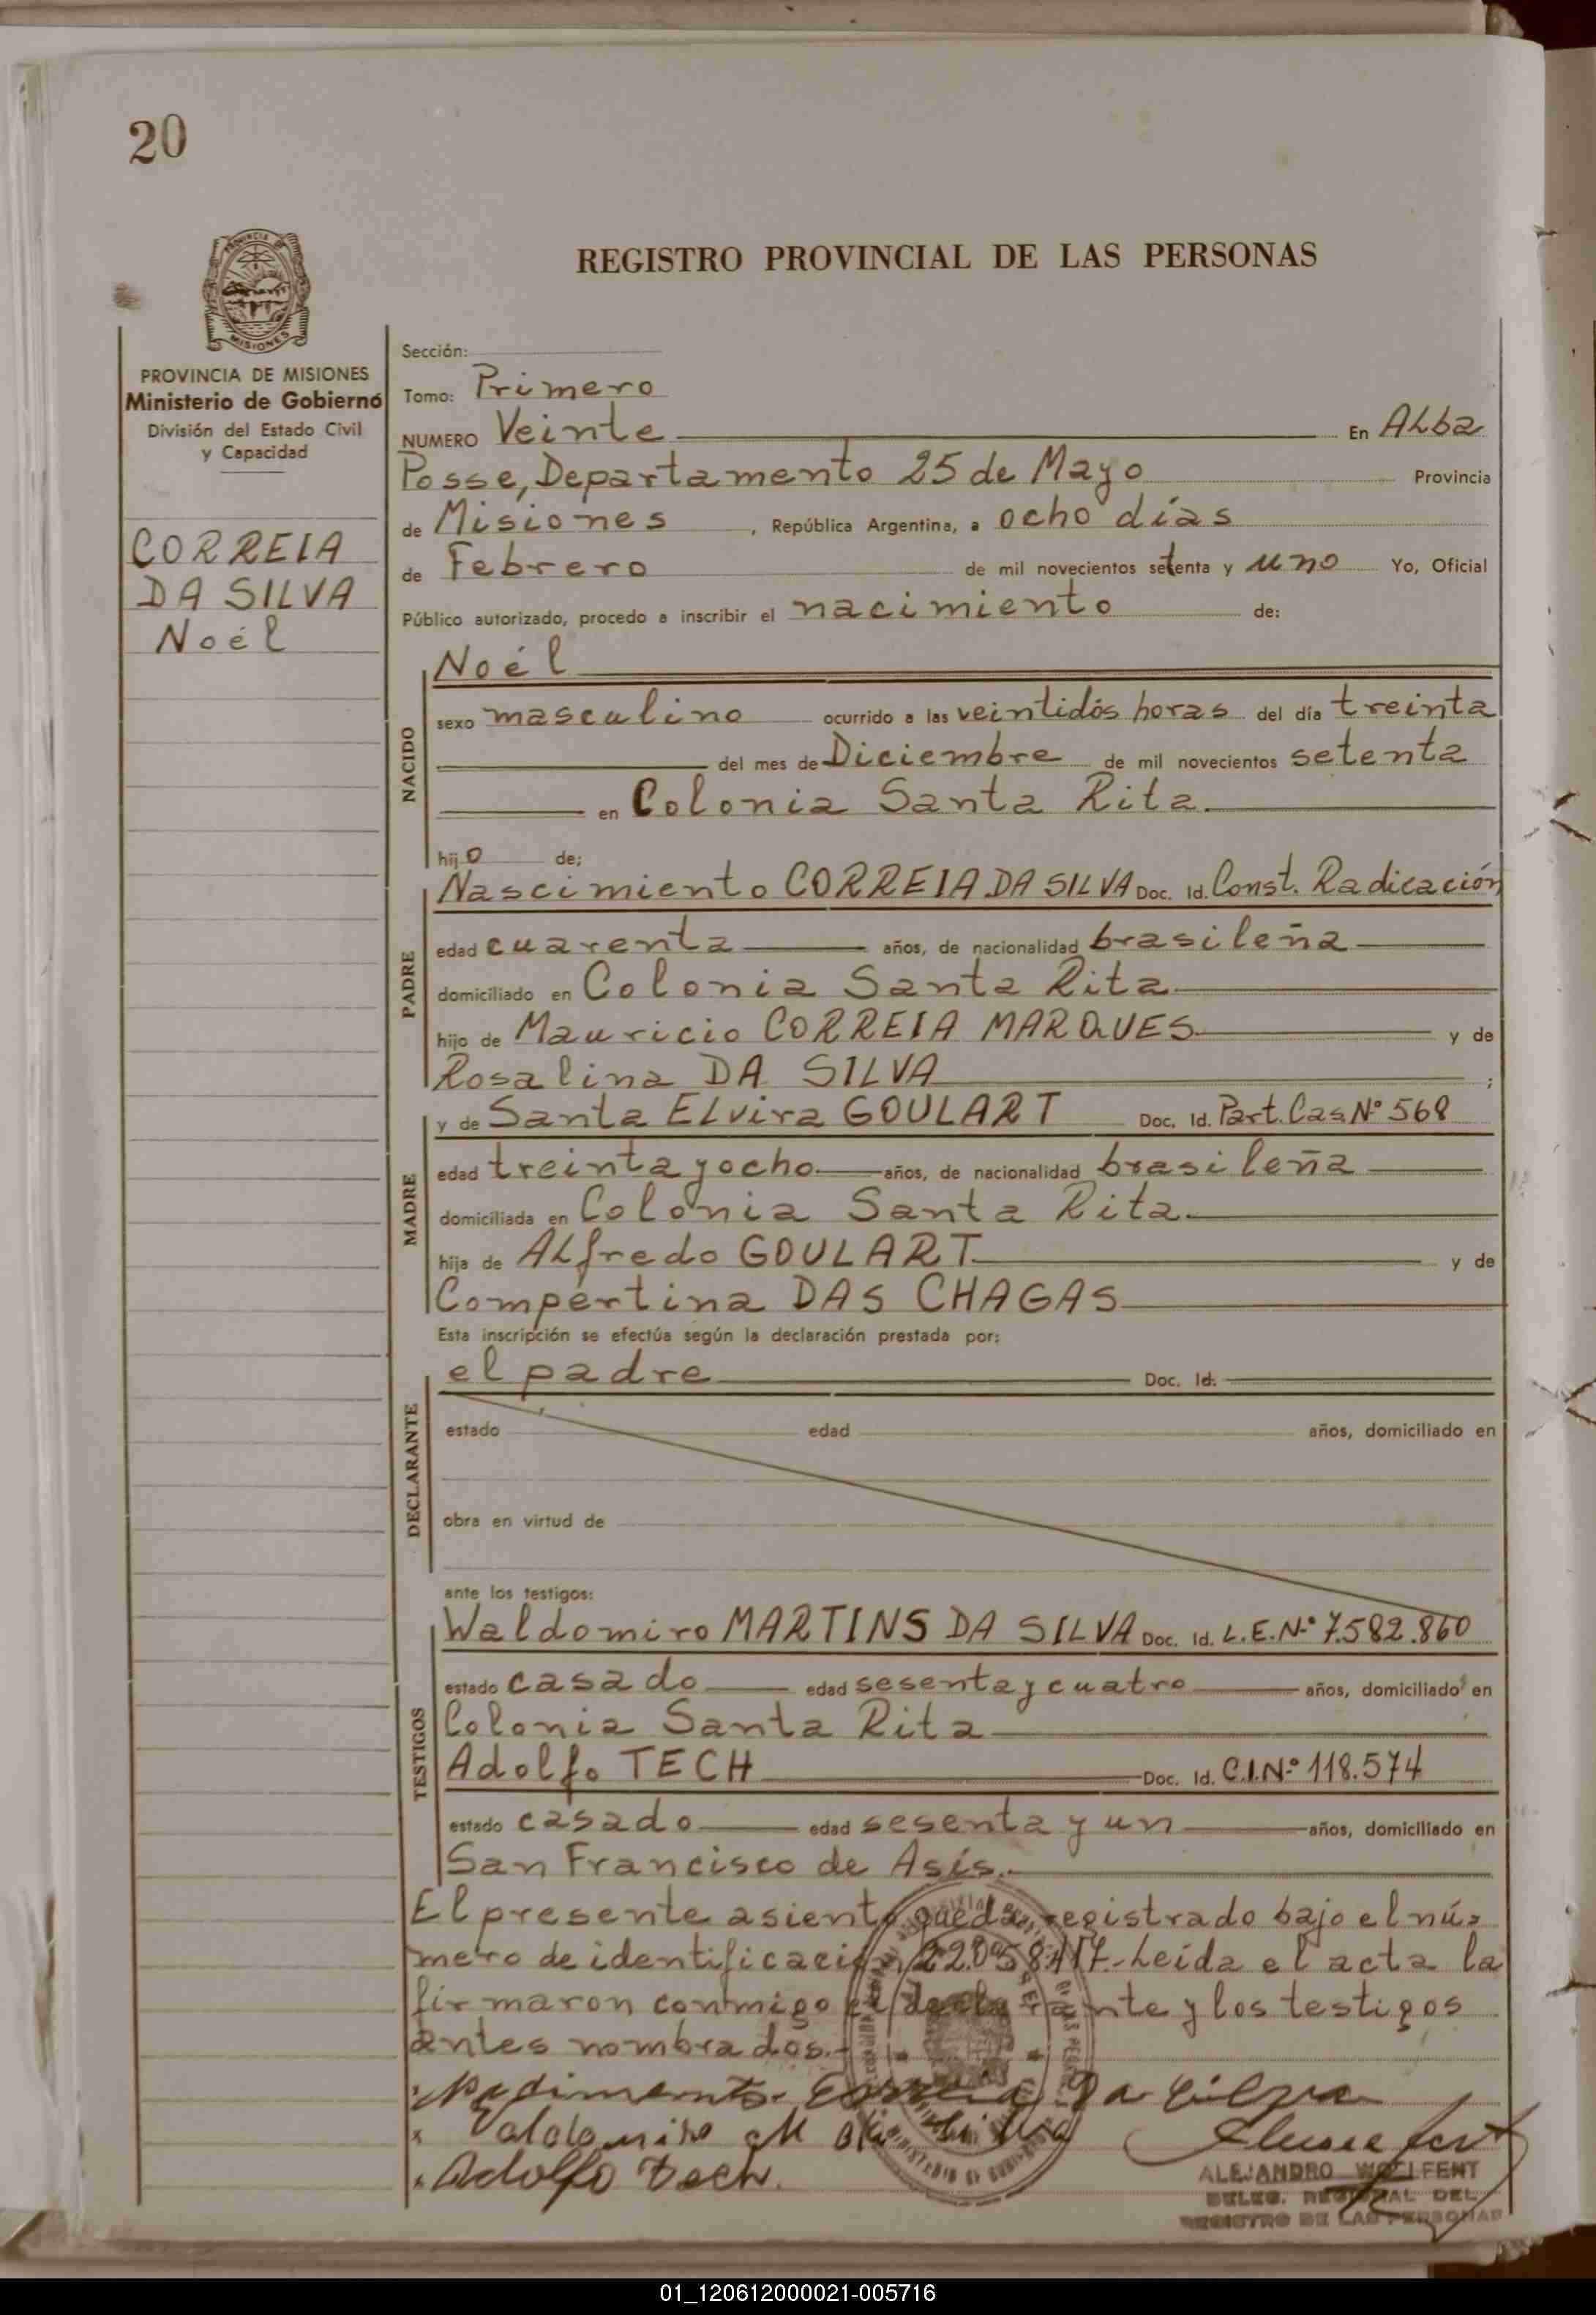 20
REGISTRO PROVINCIAL DE LAS PERSONAS
PROVINCIA DE
MISIONES
PROVINCIA DE MISIONES
Ministerio de Gobierno
División del Estado Civil
y Capacidad
CORREIA
DA SILVA
Noél
Sección:
Tomo: Primero
NUMERO Veinte En Alba
Posse, Departamento 25 de Mayo Provincia
de Misiones, República Argentina, a ocho días
de Febrero de mil novecientos setenta y uno Yo, Oficial
Público autorizado, procedo a inscribir el nacimiento de:
NACIDO
Noél
sexo masculino ocurrido a las veintidós horas del día treinta
del mes de Diciembre de mil novecientos setenta
en Colonia Santa Rita.
hijo de;
PADRE
Nascimiento CORREIA DA SILVA Doc. Id. Const. Radicación
edad cuarenta años, de nacionalidad brasileña
domiciliado en Colonia Santa Rita
hijo de Mauricio CORREIA MARQUES y de
Rosalina DA SILVA ;
MADRE
y de Santa Elvira GOULART Doc. Id. Part. Cas. Nº 568
edad treinta y ocho años, de nacionalidad brasileña
domiciliada en Colonia Santa Rita.
hija de Alfredo GOULART y de
Compertina DAS CHAGAS
Esta inscripción se efectúa según la declaración prestada por:
DECLARANTE
el padre Doc. Id.
estado edad años, domiciliado en
obra en virtud de
ante los testigos:
TESTIGOS
Waldomiro MARTINS DA SILVA Doc. Id. L.E.Nº 7.582.860
estado casado edad sesenta y cuatro años, domiciliado en
Colonia Santa Rita
Adolfo TECH Doc. Id. C.I.Nº 118.574
estado casado edad sesenta y un años, domiciliado en
San Francisco de Asís.
El presente asiento queda registrado bajo el nú=
mero de identificación Leída el acta la
firmaron conmigo el declarante y los testigos
antes nombrados.-
Correia da Silva
M da Silva
Adolfo Tech.
ALEJANDRO WOELFENT
DELEG. REGIONAL DEL
REGISTRO DE LAS PERSONAS
01_120612000021-005716